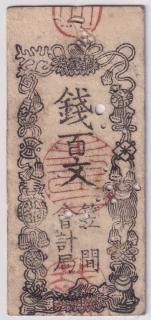 錢百文
笠間
會計局